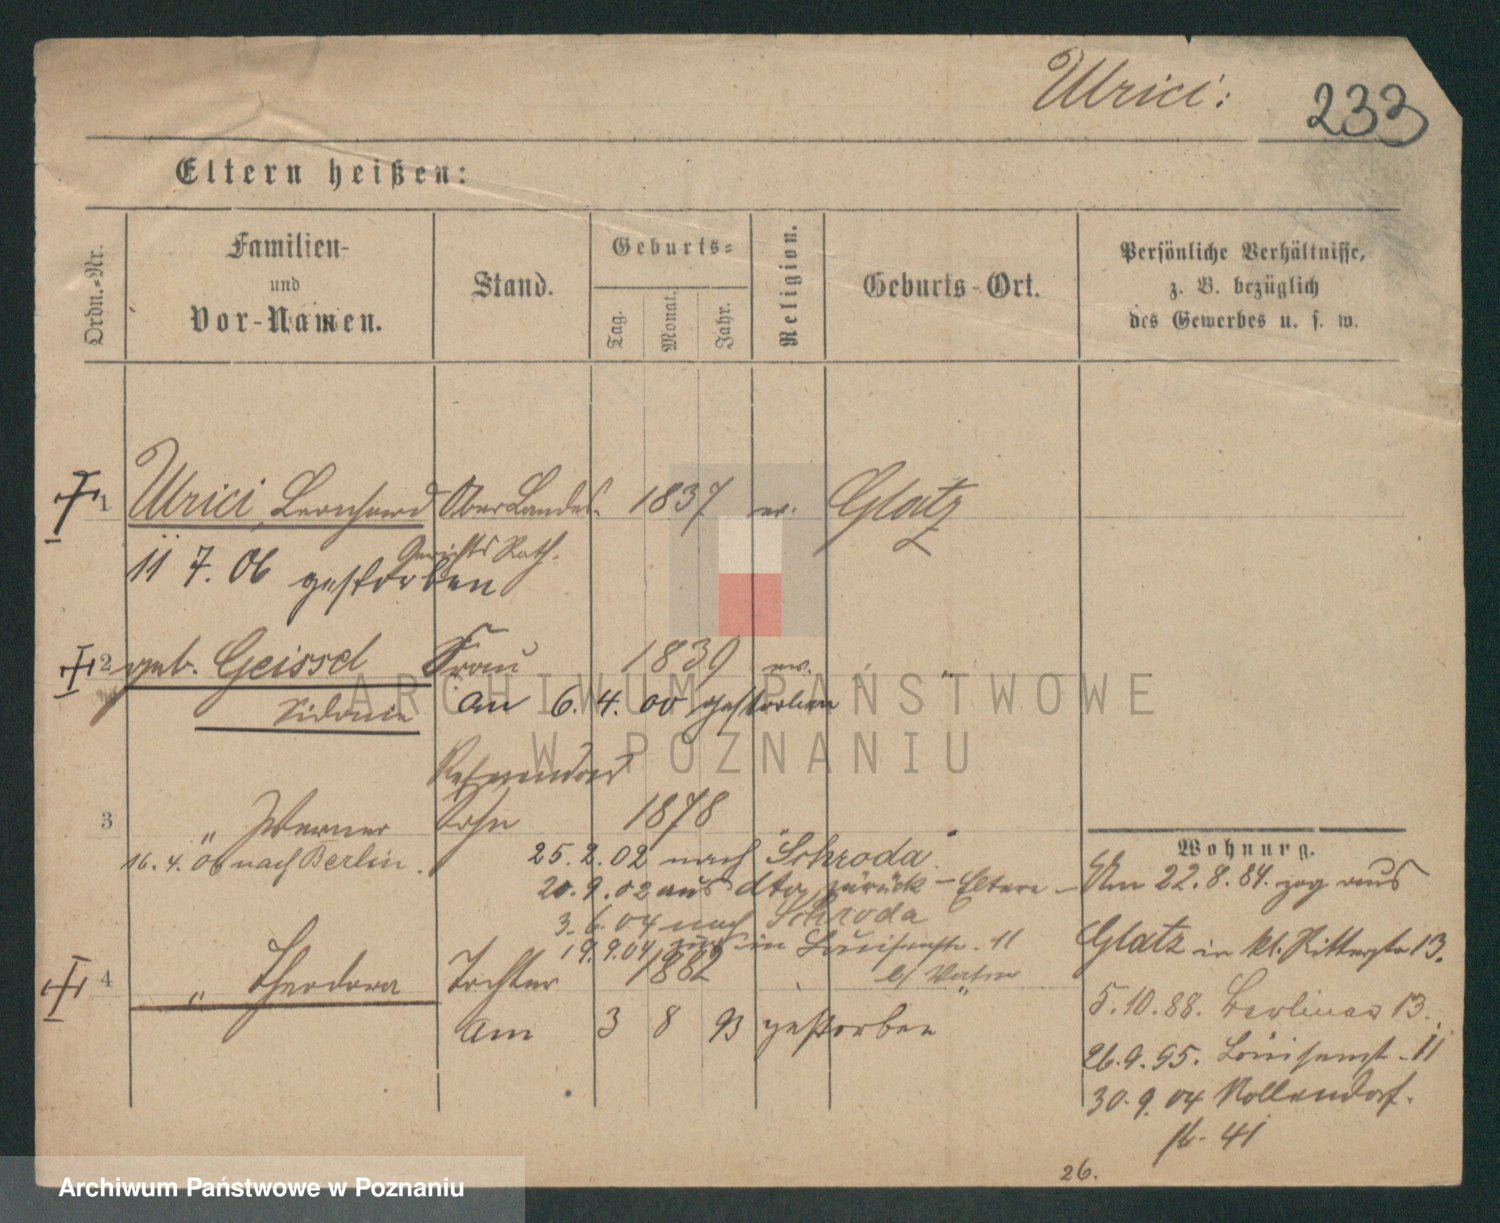 Ulrici:
233
Eltern heißen:
Ordn.-Nr.
Familien-
und
Vor-Namen.
Stand.
Geburts-
Tag.
Monat.
Jahr.
Religion.
Geburts-Ort.
Persönliche Verhältnisse,
z. B. bezüglich
des Gewerbes u. s. w.
1 Ulrici, Bernhard Ober Landes- 1837 ev. Glatz
Gerichts Rath.
11 7. 06 gestorben
2 geb. Geissel Frau 1839 ev. "
Sidonie am 6. 4. 00 gestorben
Referendar
3 " Werner Sohn 1878 "
16. 4. 06 nach Berlin. 25. 2. 02 nach Schroda
20. 9. 02 aus dto zurück - Eltern -
3. 6. 04 nach Schroda
19. 9. 04 in Louisenstr. 11
b/ Vater
4 " Theodora Tochter 1882 "
am 3 8 93 gestorben
Wohnung.
Am 22. 8. 84. zog aus
Glatz in kl. Ritterstr 13.
5. 10. 88. Berliner 13.
26. 9. 95. Louisenst. 11
30. 9. 04 Nollendorf-
st. 41
26.
ARCHIWUM PAŃSTWOWE
W POZNANIU
Archiwum Państwowe w Poznaniu